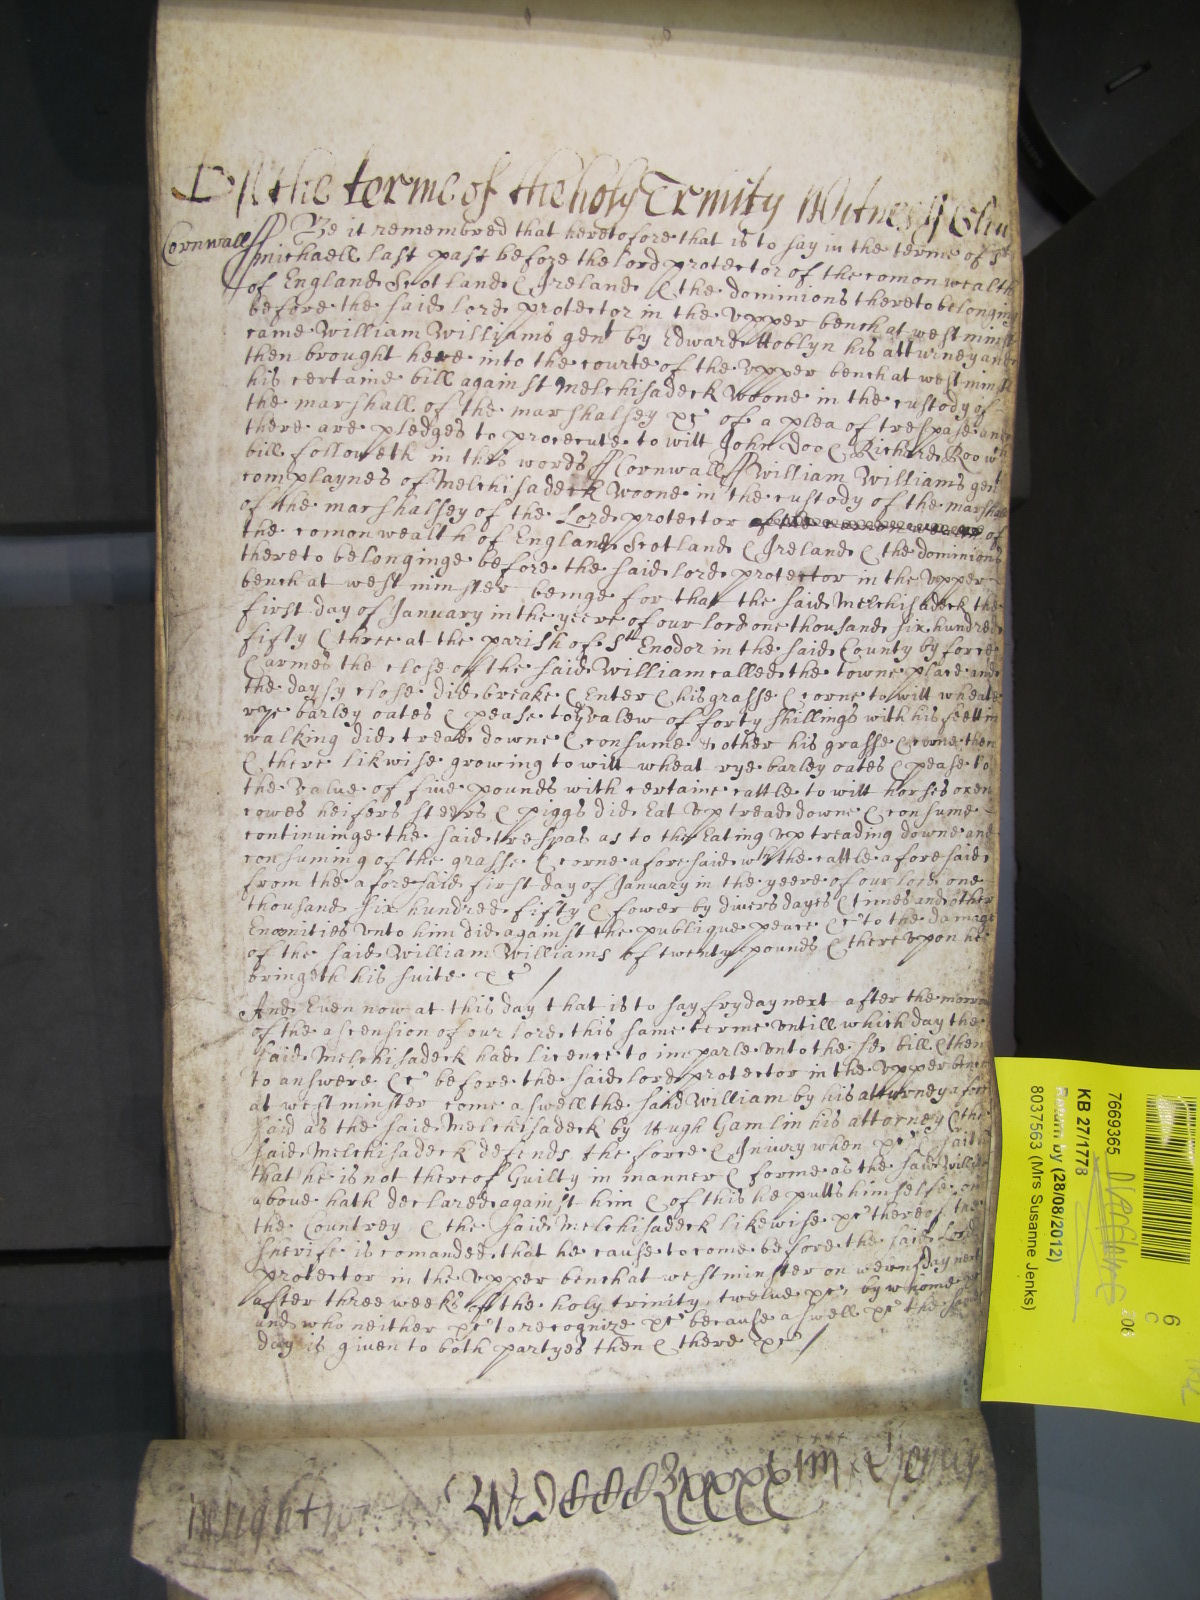 In the terme of the holy Trinity Witnes Iohn
Cornwall ss Be it remembred that heretofore that is to say in the terme of St
michaell last past before the lord protector of the comon wealth
of England Scotland & Ireland & the dominions thereto belonging
before the said lord protector in the vpper bench at westminst
came William Williams gent by Edward Hoblyn his atturney and
then brought here into the courte of the vpper bench at westminst
his certaine bill against Melchisadeck Woone in the custody of
the marshall of the marshalsey &c of a plea of trespase and
there are pledges to prosecute to witt John Doo & Richard Roo wch
bill followeth in thes words ss Cornwall ss William Williams gent
complaynes of Melchisadeck Woone in the custody of the marshall
of the marshalsey of the Lord protector of
the comonwealth of England Scotland & Ireland & the dominions
thereto belonginge before the said lord protector in the vpper
bench at westminster beinge for that the said Melchisadeck the
first day of January in the yeere of our lord one thousand six hundred
fifty & three at the parish of St Enodor in the said County by force
& armes the close of the said William called the towne place and
the daysy close did breake & Enter & his grasse & corne to witt wheate
rye barley oates & pease to ye valew of forty shillings with his feett in
walking did tread downe & consume & other his grasse & corne then
& there likwise growing to witt wheat rye barley oates & pease to
the value of five pounds with certaine cattle to witt horses oxen
cowes heifers steers & piggs did Eat vp tread downe & consume
continuinge the said trespas as to the Eating vp treading downe and
consuming of the grasse & corne aforesaid wth the cattle aforesaid
from the aforesaid first day of January in the yeere of our lord one
thousand six hundred fifty & fower by divers dayes & times and other
Enormities vnto him did against the publique peace &c to the damage
of the said William Williams of twenty pounds & therevpon he
bringeth his suite &c /
And Even now at this day that is to say fryday next after the morrow
of the ascension of our lord this same terme vntill which day the
said Melchisadeck had licence to imparle vnto the sd bill & then
to answere &c before the said lord protector in the vpper bench
at westminster come aswell the said William by his atturney afore
said as the said Melchisadeck by Hugh Gamlin his attorney & the
said Melchisadeck defends the force & Iniury when &c & saith
that he is not thereof Guilty in manner & forme as the said William
above hath declared against him & of this he putts himselfe on
the Countrey & the said Melchisadeck likewise &c thereof the
sherife is comanded that he cause to come before the said lord
protector in the vpper bench at westminster on wednsday next
after three weeks of the holy trinity twelve &c by whome &c
and who neither &c to recognize &c because aswell &c the same
day is given to both partyes then & there &c /
7669365
KB 27/1778
Return by (28/08/2012)
8037563 (Mrs Susanne Jenks)
6
C
206